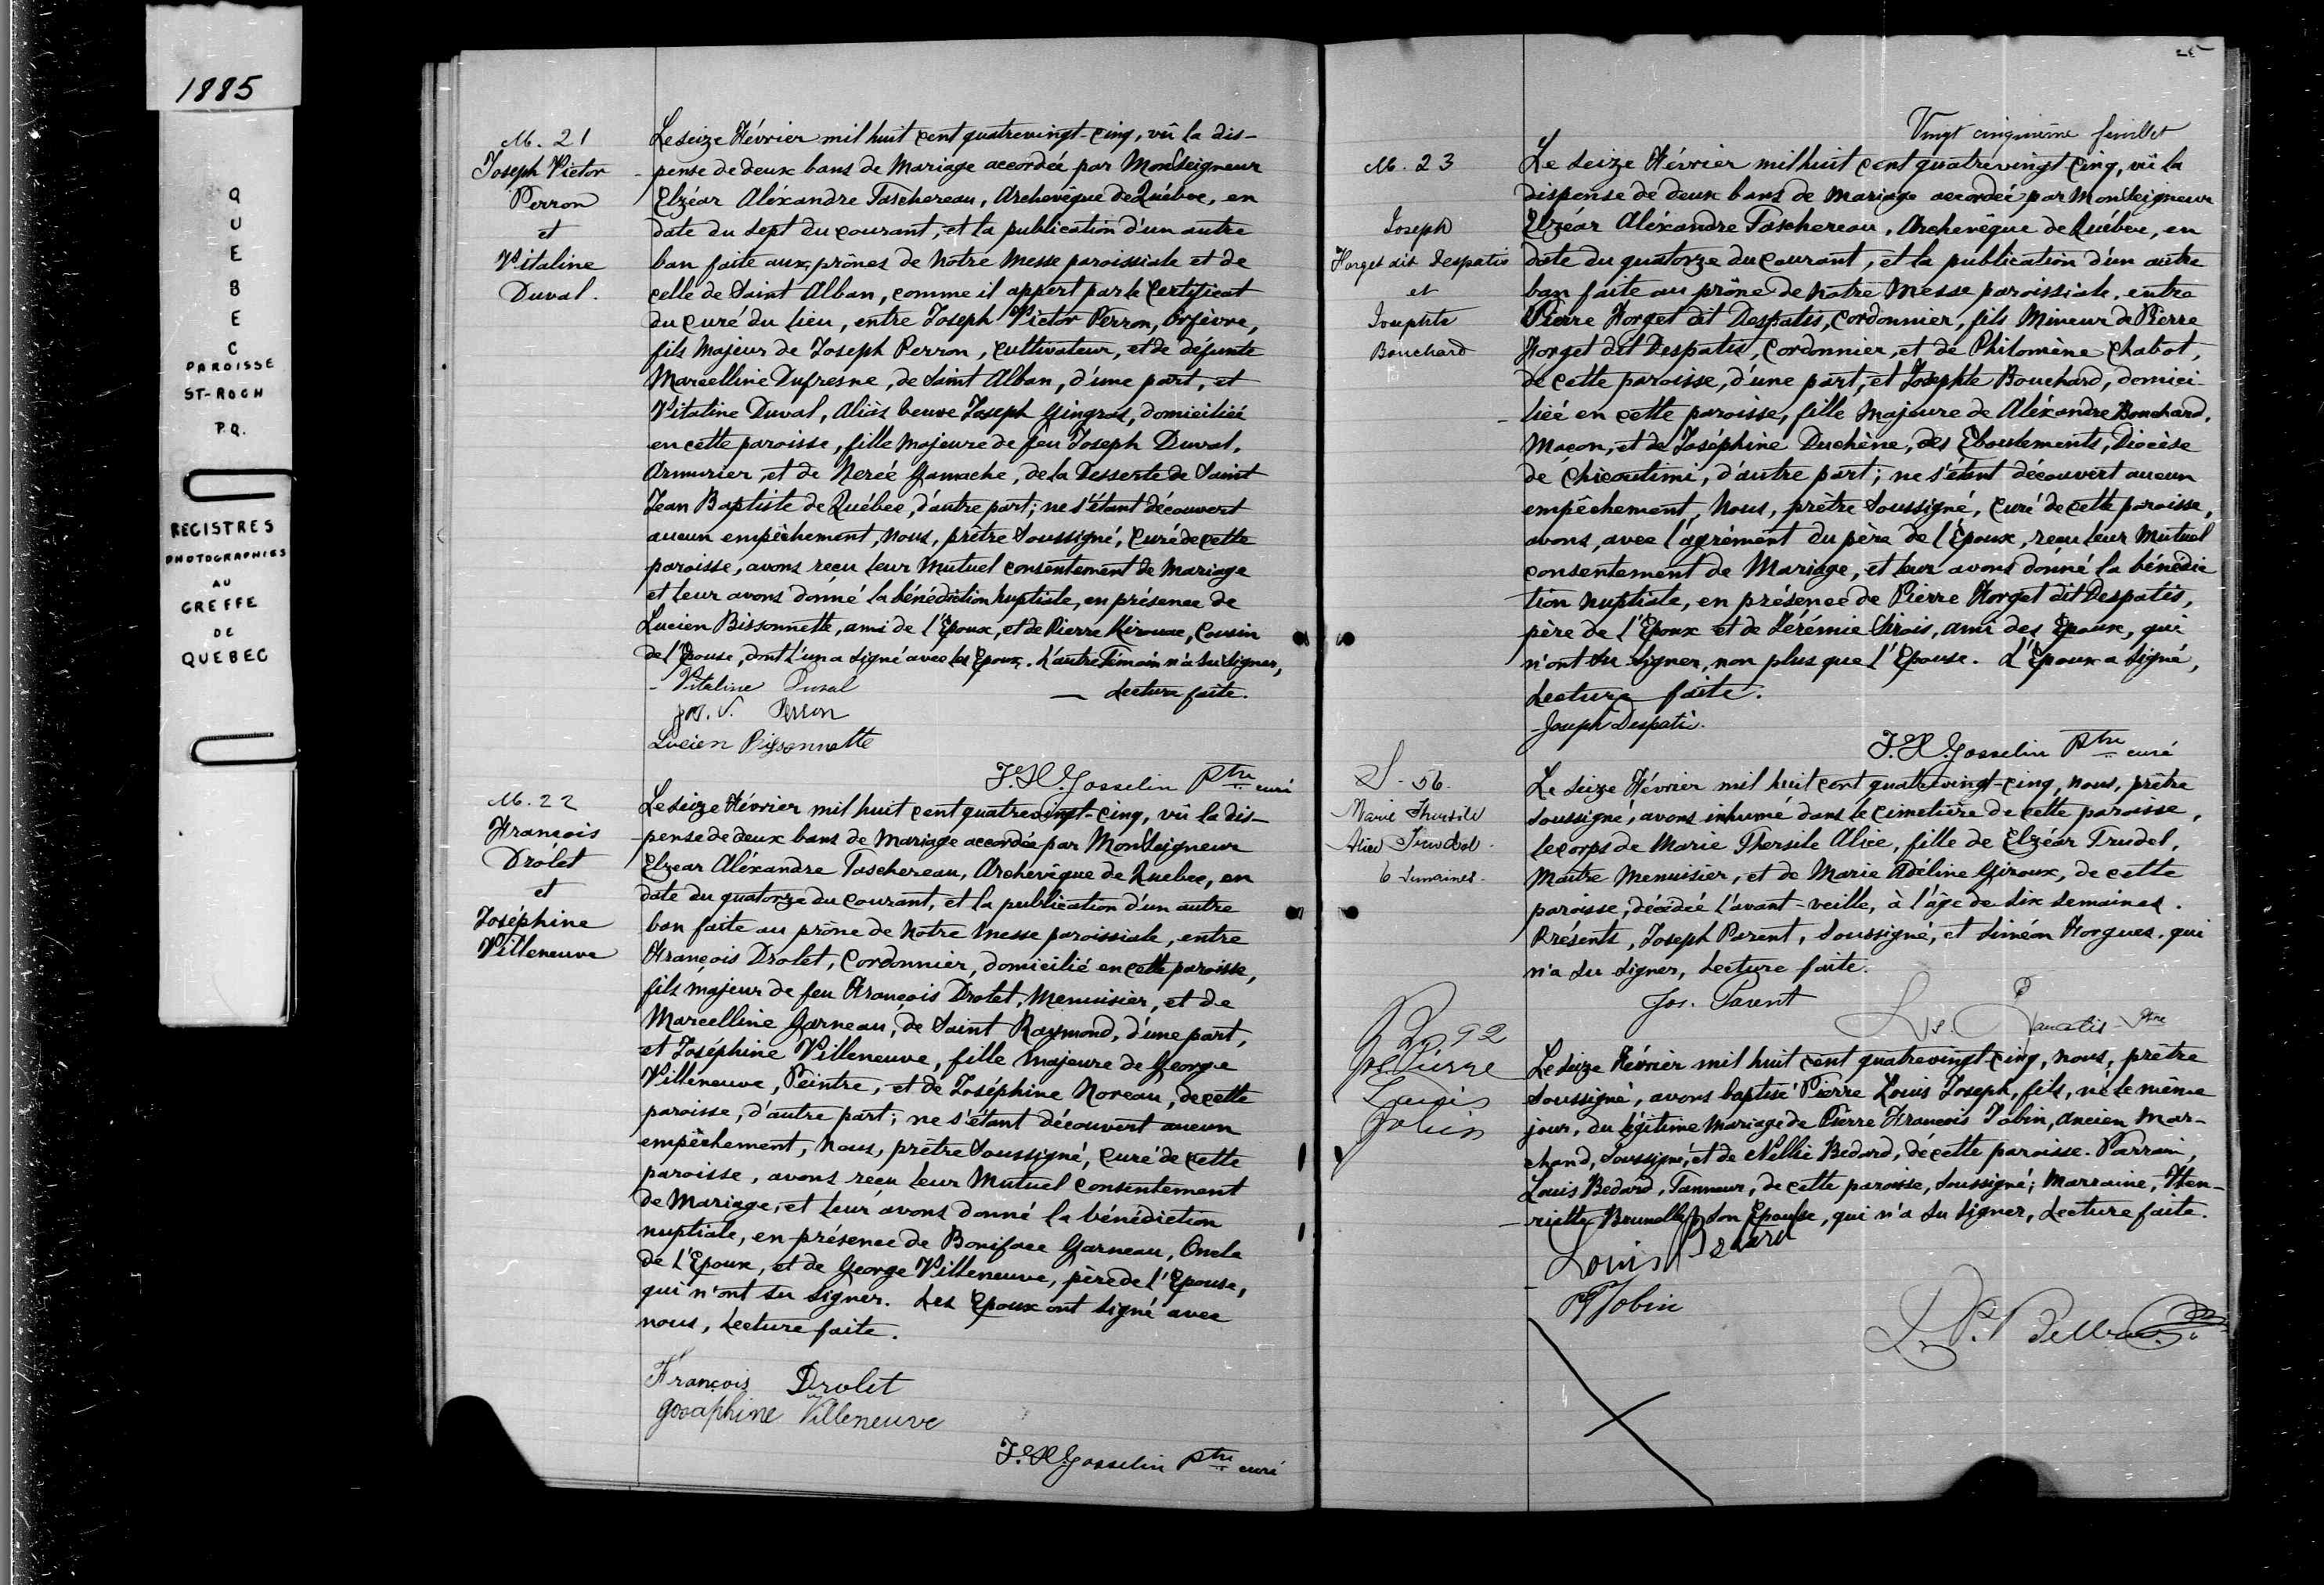 1885
QUEBEC
PAROISSE
ST-ROCH
P.Q.
REGISTRES
PHOTOGRAPHIES
AU
GREFFE
DE
QUEBEC
M. 21
Joseph Victor
Perron
et
Vitaline
Duval.
Le seize Février mil huit cent quatrevingt-cinq, vû la dis-
pense de deux bans de Mariage accordée par Monseigneur
Elzéar Aléxandre Taschereau, Archevêque de Québec, en
date du sept du courant, et la publication d'un autre
ban faite aux prônes de Notre Messe paroissiale et de
celle de Saint Alban, comme il appert par le Certificat
du curé du lieu, entre Joseph Victor Perron, Orfèvre,
fils Majeur de Joseph Perron, Cultivateur, et de défunte
Marcelline Dufresne, de Saint Alban, d'une part, et
Vitaline Duval, Aliàs veuve Joseph Gingras, domiciliée
en cette paroisse, fille Majeure de feu Joseph Duval,
Armurier, et de Nereé Gamache, de la Desserte de Saint
Jean Baptiste de Québec, d'autre part; ne s'étant découvert
aucun empêchement, Nous, prêtre Soussigné, Curé de cette
paroisse, avons reçu leur Mutuel consentement de Mariage
et leur avons donné la bénédiction nuptiale, en présence de
Lucien Bissonnette, ami de l'Epoux, et de Pierre Kirouac, Cousin
de l'Epouse, dont l'un a signé avec les Epoux. L'autre Témoin n'a su signer,
Lecture faite.
Vitaline Duval
Jos. V. Perron
Lucien Bissonnette
F. H. Gosselin Ptre curé
M. 22
François
Drolet
et
Joséphine
Villeneuve
Le seize Février mil huit cent quatrevingt-cinq, vû la dis-
pense de deux bans de Mariage accordée par Monseigneur
Elzear Aléxandre Taschereau, Archevêque de Quebec, en
date du quatorze du courant, et la publication d'un autre
ban faite au prône de Notre Messe paroissiale, entre
François Drolet, Cordonnier, domicilié en cette paroisse,
fils majeur de feu François Drolet, Menuisier, et de
Marcelline Garneau, de Saint Raymond, d'une part,
et Joséphine Villeneuve, fille Majeure de George
Villeneuve, Peintre, et de Joséphine Noreau, de cette
paroisse, d'autre part; ne s'étant découvert aucun
empêchement, Nous, prêtre Soussigné, Curé de cette
paroisse, avons reçu leur Mutuel consentement
de Mariage, et leur avons donné la bénédiction
nuptiale, en présence de Boniface Garneau, Oncle
de l'Epoux, et de George Villeneuve, père de l'Epouse,
qui n'ont su signer. Les Epoux ont signé avec
nous, Lecture faite.
François Drolet
Josaphine Villeneuve
F. H. Gosselin Ptre curé
25
Vingt cinquième feuillet
M. 23
Joseph
Forget dit Despatis
et
Josephte
Bouchard
Le seize Février mil huit cent quatrevingt cinq, vû la
dispense de deux bans de Mariage accordée par Monseigneur
Elzéar Aléxandre Taschereau, Archevêque de Québec, en
date du quatorze du courant, et la publication d'un autre
ban faite au prône de Notre Messe paroissiale, entre
Pierre Forget dit Despatis, Cordonnier, fils Mineur de Pierre
Forget dit Despatis, Cordonnier, et de Philomène Chabot,
de cette paroisse, d'une part, et Josephte Bouchard, domici-
liée en cette paroisse, fille Majeure de Aléxandre Bouchard,
Maçon, et de Joséphine Duchène, des Eboulements, Diocèse
de Chicoutimi, d'autre part; ne s'étant découvert aucun
empêchement, Nous, prêtre Soussigné, Curé de cette paroisse,
avons, avec l'agrément du père de l'Epoux, reçu leur Mutuel
consentement de Mariage, et leur avons donné la bénédic
tion nuptiale, en présence de Pierre Forget dit Despatis,
père de l'Epoux et de Jérémie Sirois, ami des Epoux, qui
n'ont su signer, non plus que l'Epouse. L'Epoux a signé,
Lecture faite.
Joseph Despatis.
F. H. Gosselin Ptre curé
S. 56.
Marie Thersile
Alice Trudel.
6 Semaines.
Le seize Février mil huit cent quatrevingt-cinq, nous, prêtre
soussigné, avons inhumé dans le cimetière de cette paroisse,
le corps de Marie Thersile Alice, fille de Elzéar Trudel,
Maître Menuisier, et de Marie Adéline Giroux, de cette
paroisse, décédée l'avant-veille, à l'âge de six semaines.
Présents, Joseph Parent, Soussigné, et Siméon Forgues, qui
n'a su signer, Lecture faite.
Jos. Parent
Ls. Paradis Ptre
B. 92
Jos Pierre
Louis
Jobin
Le seize Février mil huit cent quatrevingt cinq, nous, prêtre
soussigné, avons baptisé Pierre Louis Joseph, fils, né le même
jour, du légitime Mariage de Pierre François Jobin, ancien Mar-
chand, soussigné, et de Nellie Bedard, de cette paroisse. Parrain,
Louis Bedard, Tanneur, de cette paroisse, soussigné; Marraine, Hen-
riette Brunelle son Epouse, qui n'a su signer, Lecture faite.
Louis Bedard
Jobin